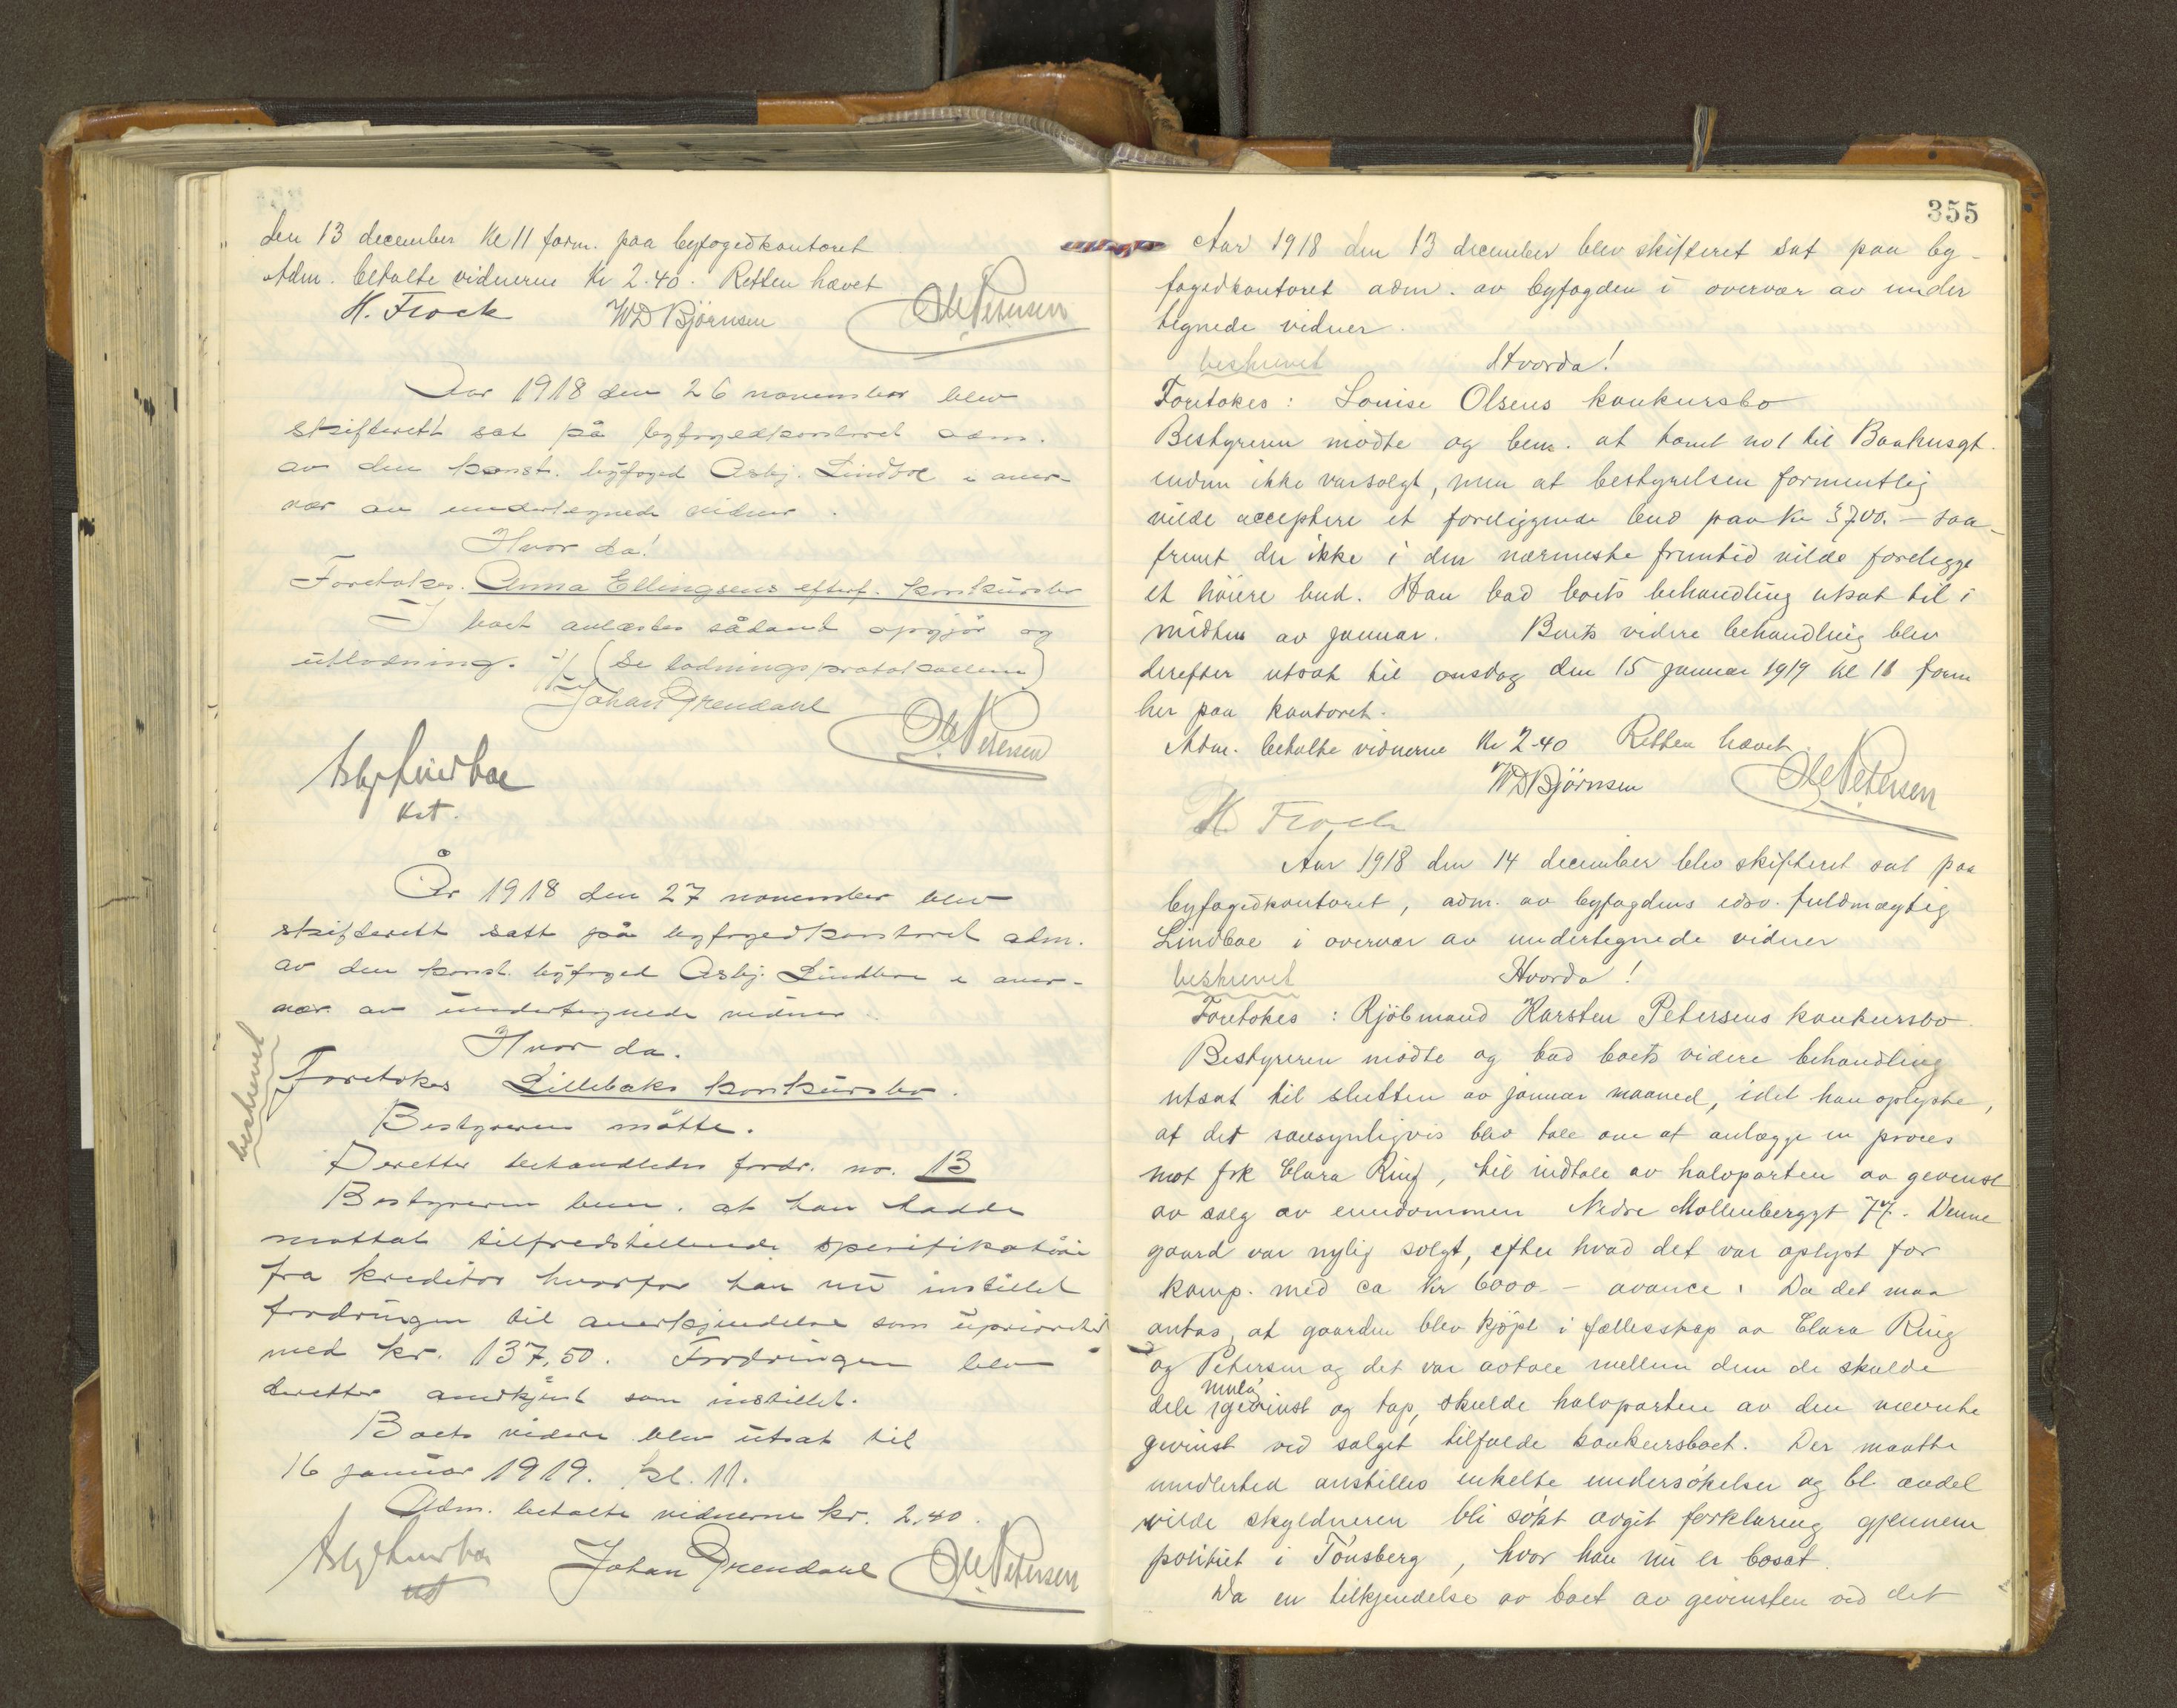 den 13 december kl 11 form. paa byfogedkontoret
Adm. betalte vidnerne Kr 2.40. Retten hævet
H. Frock WD Bjørnsen Ole Petersen
Aar 1918 den 26 november blev
skifterett sat på byfogedkontoret adm.
av den konst. byfoged Asbj. Lindboe i over-
vær av undertegnede vidner.
Hvor da!
Foretokes. Anna Ellingsens efterf. konkursbo
I boet avlæstes sådant opgjør og
utlodning. ·/. (Se lodningsprotokollen)
Johan Grendahl
Ole Petersen
Asbj Lindboe
kst.
År 1918 den 27 november blev
skifterett satt på byfogedkontoret adm.
av den konst. byfoged Asbj. Lindboe i over-
vær av undertegnede vidner.
Hvor da.
beskrevet
Foretokes Lillebaks konkursbo.
Bestyreren møtte.
Deretter behandledes fordr. no. 13
Bestyreren bem. at han hadde
mottat tilfredstillende spesifikation
fra kreditor hvorfor han nu instillet
fordringen til anerkjendelse som uprioritert
med kr. 137,50. Fordringen blev
deretter anerkjent som instillet.
Boets videre blev utsat til
16 januar 1919. kl. 11.
Adm. betalte vidnerne kr. 2,40.
Asbj Lindboe Johan Grendahl Ole Petersen
kst
355
Aar 1918 den 13 december blev skifteret sat paa by-
fogedkontoret adm. av byfogden i overvær av under
tegnede vidner.
beskrevet Hvorda!
Foretokes: Louise Olsens konkursbo
Bestyreren mødte og bem. at tomt no 1 til Baahusgt.
endnu ikke var solgt, men at bestyrelsen formentlig
vilde acceptere et foreliggende bud paa Kr 3700.- saa-
fremt der ikke i den nærmeste fremtid vilde foreligge
et høiere bud. Han bad boets behandling utsat til i
midten av januar. Boets videre behandling blev
derefter utsat til onsdag den 15 januar 1919 kl 10 form
her paa kontoret.
Adm. betalte vidnerne Kr 2-40 Retten hævet.
WD Bjørnsen Ole Petersen
H. Frock
Aar 1918 den 14 december blev skifteret sat paa
byfogedkontoret, adm. av byfogdens edsv. fuldmægtig
Lindboe i overvær av undertegnede vidner
beskrevet Hvorda!
Foretokes: Kjøbmand Karsten Petersens konkursbo
Bestyreren mødte og bad boets videre behandling
utsat til slutten av januar maaned, idet han oplyste,
at det sansynligvis blev tale om at anlægge en proces
mot frk Clara Ring, til indtale av halvparten av gevinst
av salg av eiendommen Nedre Møllenberggt 77. Denne
gaard var nylig solgt, efter hvad det var oplyst for
komp. med ca kr 6000 - avance. Da det maa
antas, at gaarden blev kjøpt i fællesskap av Clara Ring
og Petersen og det var avtale mellem dem de skulde
dele mulig gevinst og tap, skulde halvparten av den nævnte
gevinst ved salget tilfalde konkursboet. Der maatte
imidlertid anstilles enkelte undersøkelser og bl. andel
vilde skyldneren bli søkt avgit forklaring gjennem
politiet i Tønsberg, hvor han nu er bosat.
Da en tilkjendelse av boet av gevinsten ved det